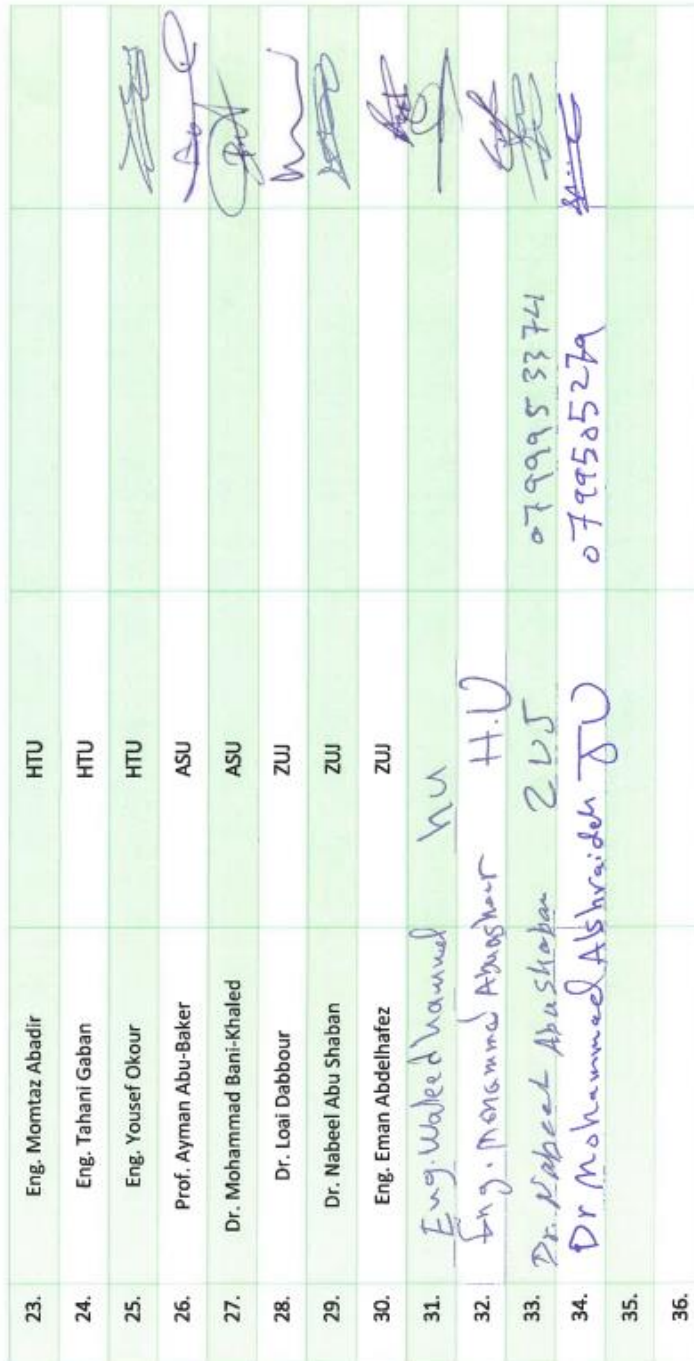 23. Eng. Momtaz Abadir HTU
24. Eng. Tahani Gaban HTU
25. Eng. Yousef Okour HTU
26. Prof. Ayman Abu-Baker ASU
27. Dr. Mohammad Bani-Khaled ASU
28. Dr. Loai Dabbour ZUJ
29. Dr. Nabeel Abu Shaban ZUJ
30. Eng. Eman Abdelhafez ZUJ
31. Eng. Waleed hu
32. Eng. Mohammad H.U
33. Dr. Nabeel Abu Shaban ZUJ 0799953374
34. Dr Mohammad Alshraideh JU 0799505279
35.
36.